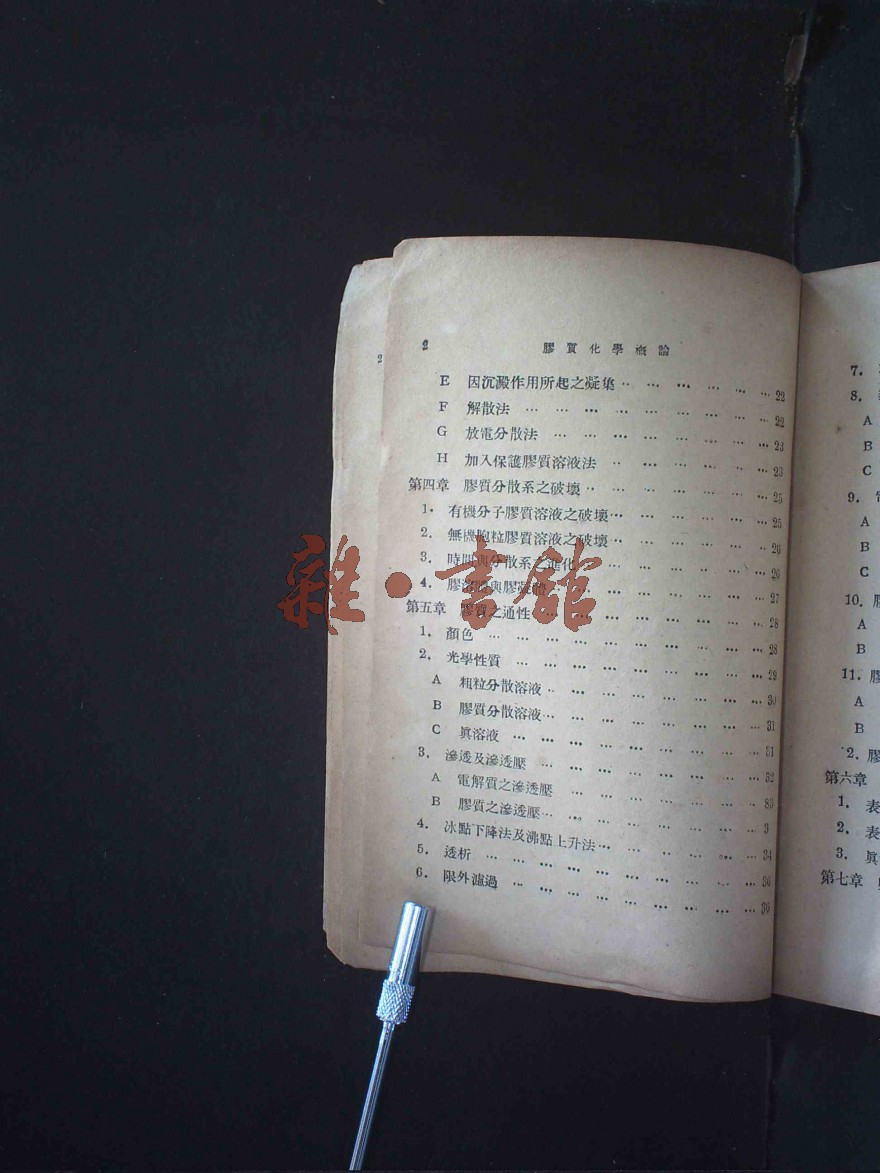 2 膠質化學概論
E 因沉澱作用所起之凝集 ... 22
F 解散法 ... 22
G 放電分散法 ... 23
H 加入保護膠質溶液法 ... 23
第四章 膠質分散系之破壞 ... 25
1. 有機分子膠質溶液之破壞 ... 25
2. 無機胞粒膠質溶液之破壞 ... 26
3. 時間與分散系之進化 ... 26
4. 膠溶體與膠凝體 ... 27
第五章 膠質之通性 ... 28
1. 顏色 ... 28
2. 光學性質 ... 29
A 粗粒分散溶液 ... 30
B 膠質分散溶液 ... 31
C 眞溶液 ... 31
3. 滲透及滲透壓 ... 32
A 電解質之滲透壓 ... 33
B 膠質之滲透壓 ... 3
4. 冰點下降法及沸點上升法 ... 34
5. 透析 ... 36
6. 限外濾過 ... 36
2
7.
8.
A
B
C
9.
A
B
C
10. 膠
A
B
11. 膠
A
B
2. 膠
第六章
1. 表
2. 表
3. 眞
第七章
雜·書館